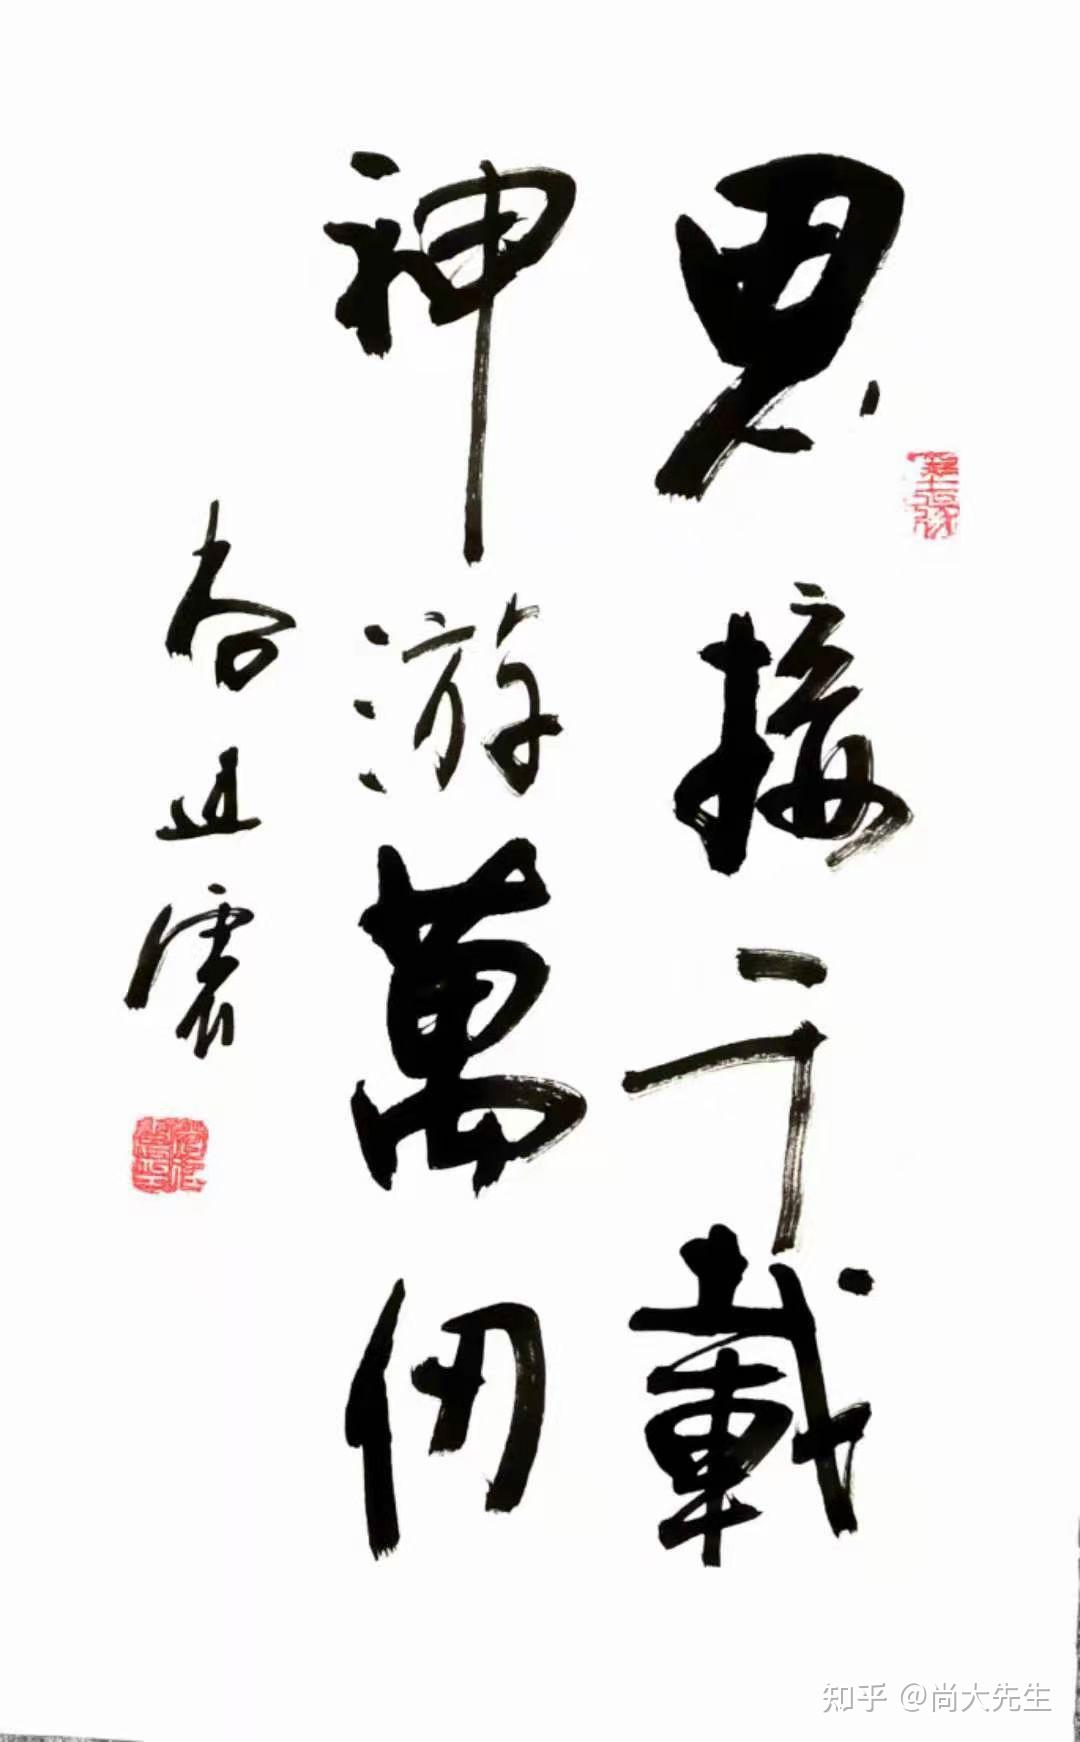 思接千載
神游萬仞
知乎 @尚大先生